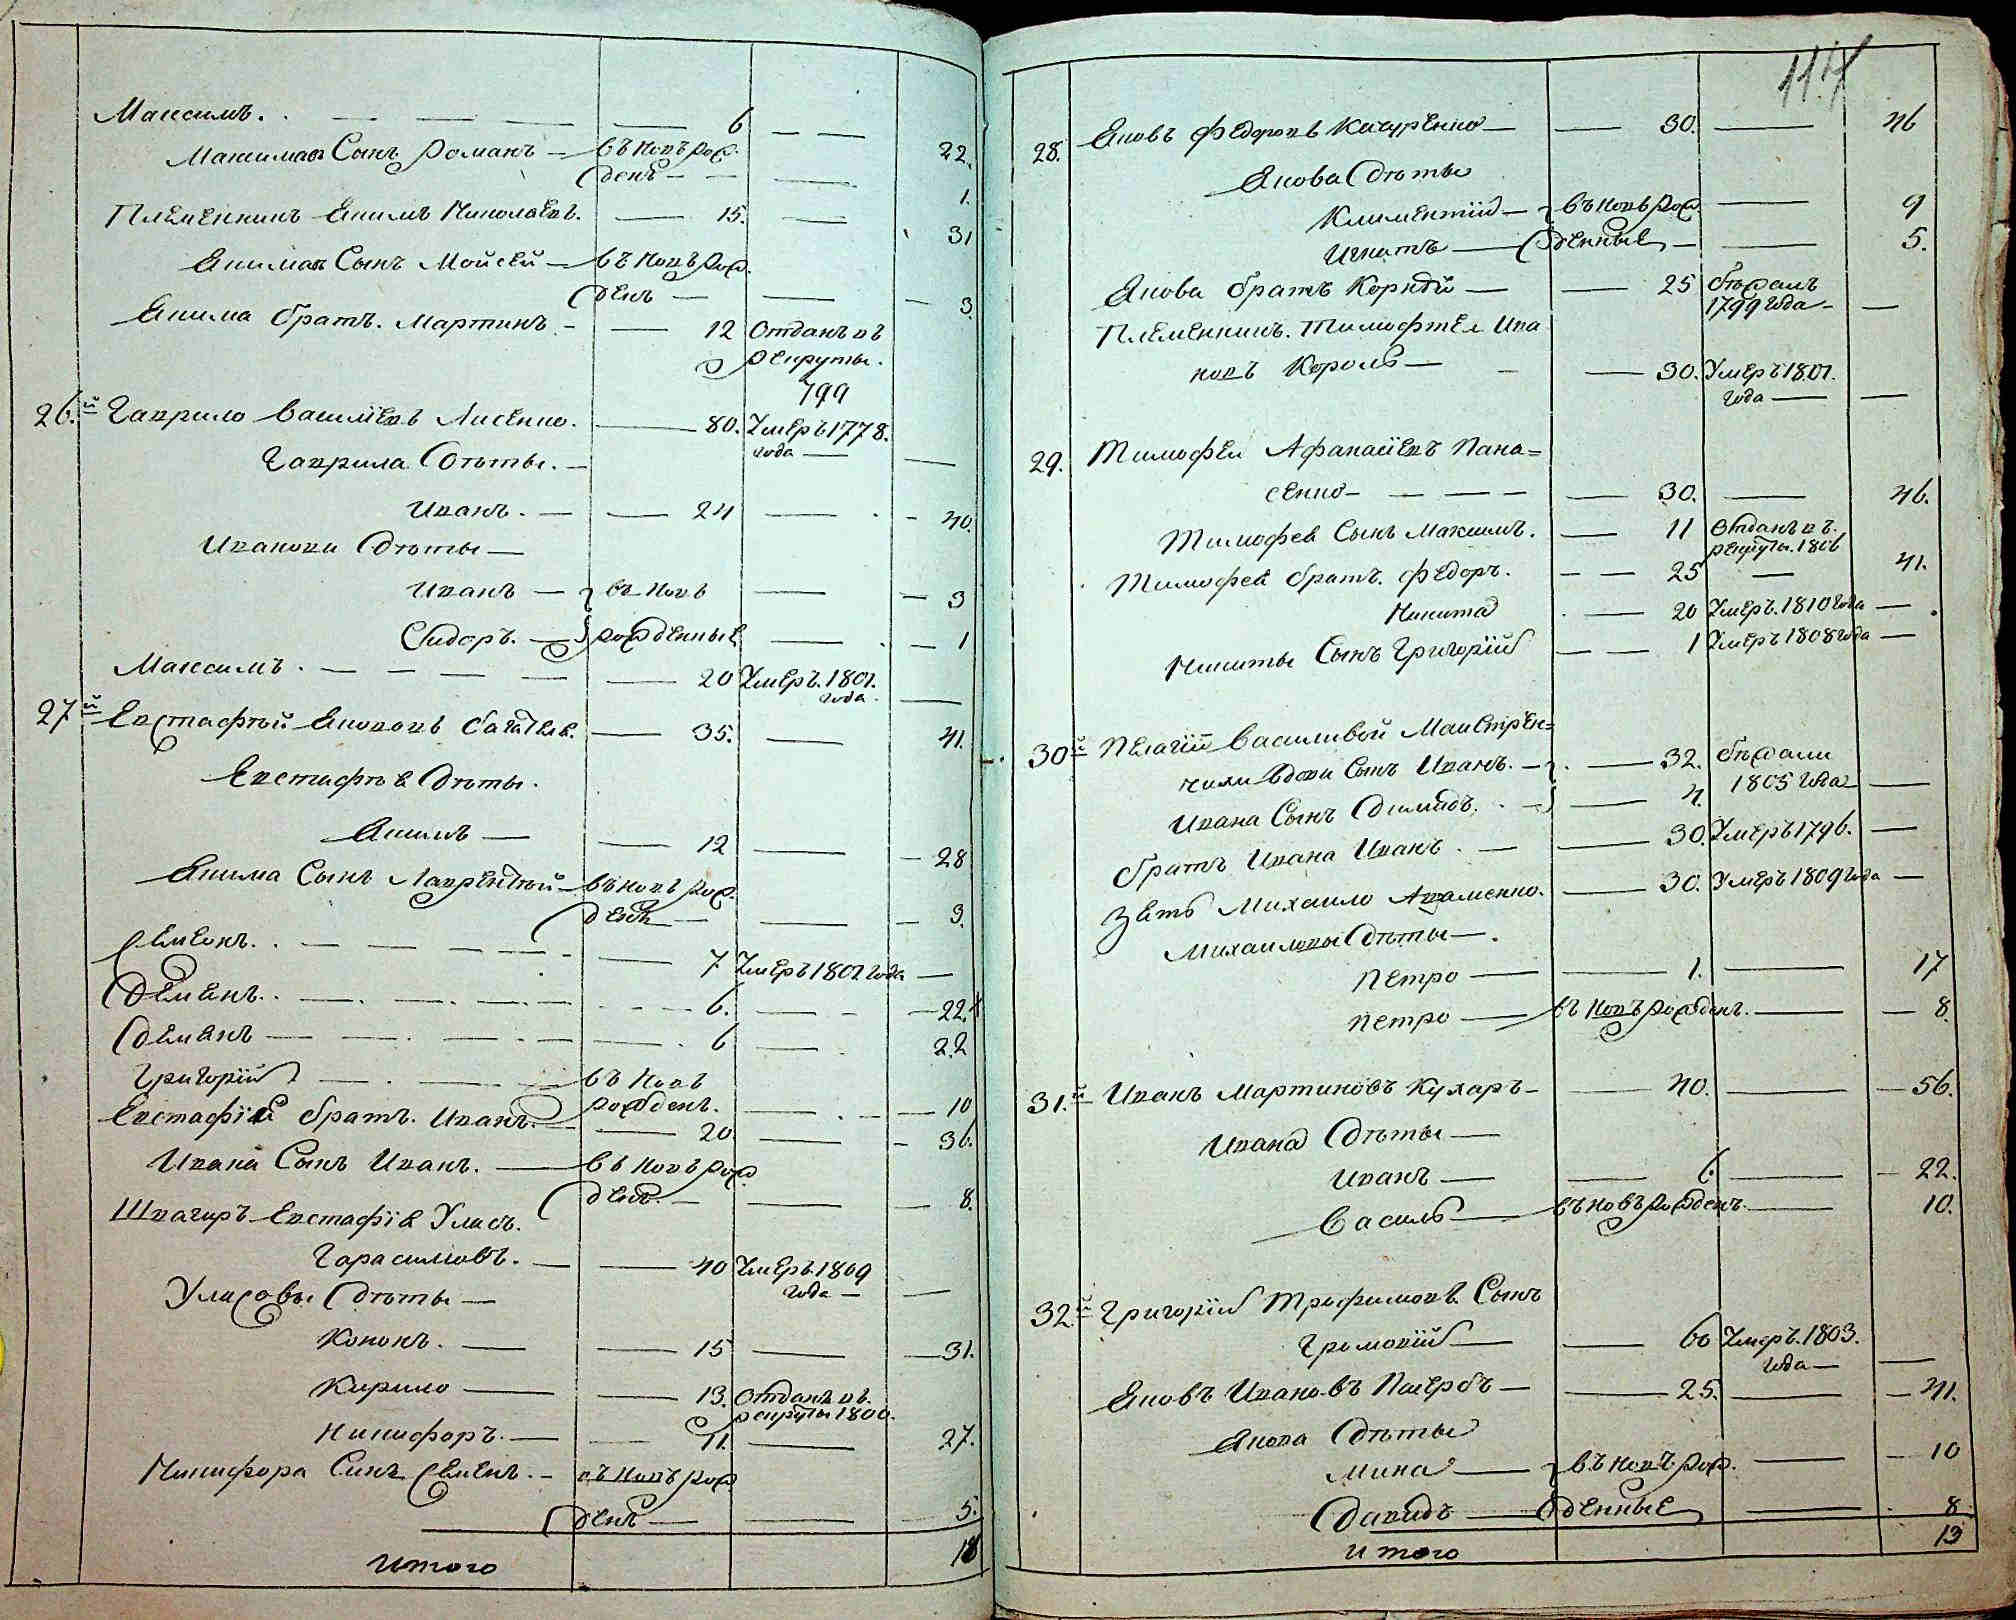 Максимъ. 6
22.
Максимовъ Сынъ Романъ въ новъ рож
денъ 1.
Племенникъ Якимъ Николаевъ. 15. 31
Якимовъ Сынъ Мойсей въ новъ рож
денъ 3
Якима братъ. Мартинъ 12 отданъ въ
рекруты.
799
26.й Гаврило Василіевъ Лисенко. 80. Умеръ 1778.
года
Гаврила Дѣты.
Иванъ. 24 40.
Иванови Дѣты
Иванъ въ новъ 3
Сидоръ. рожденные 1
Максимъ. 20 Умеръ. 1801.
года.
27й Евстафѣй Якововъ 35. 41.
Евстафѣя Дѣты.
Якимъ 12 28
Якима Сынъ Лаврентѣй въ новъ рож.
денъ 3.
Семенъ. 7 Умеръ 1801 года
Демянъ. 6. 22.
Демянъ 6 22
Григорій въ новъ
рожденъ. 10
Евстафій братъ. Иванъ. 20. 36.
Ивана Сынъ Иванъ. въ новъ рож
денъ. 8.
Швагиръ Евстафія Уласъ.
Гарасимовъ. 40 Умеръ. 1809
года
Уласовы Дѣты
Кононъ. 15 31.
Кирило 13. отданъ въ.
рекруты 1800.
Никифоръ. 11. 27.
Никифора Синъ Семенъ. въ новъ рож
денъ 5.
Итого 18
117
28. Яковъ Федоровъ Качуренко 30. 46
Якова Дѣты
Климентій въ новъ рож 9
Игнатъ денные 5.
Якова братъ Корнѣй 25 бѣжалъ
1799 года
Племенникъ. Тимофѣей Ива
новъ Король 30. Умеръ 1801.
года
29. Тимофей Афанасіевъ Пана=
сенко 30. 46.
Тимофея Сынъ Максимъ. 11 отданъ въ.
рекруты. 1806
Тимофея братъ. Федоръ. 25 41.
Никита 20 Умеръ. 1810 года
Никиты Сынъ Григорій 1 Умеръ 1808 года
30й Пелагіи Василивой Маистрен=
чихи вдови Сынъ Иванъ. 32. бѣжали
1805 года
Ивана Сынъ Димидъ. 4.
братъ Ивана Иванъ. 30. Умеръ 1796.
Зять Михаило Авраменко. 30. Умеръ 1809 года
Михаиловы Дѣты
Петро 1. 17
Петро въ новъ рожденъ. 8.
31.й Иванъ Мартиновъ Кухаръ 40. 56.
Ивана Дѣты
Иванъ 6. 22.
Василь въ новъ рожденъ. 10.
32.й Григорій Трофимовъ Сынъ
Громовій 60 Умеръ. 1803.
года
Яковъ Ивановъ 25. 41.
Якова Дѣты
Мина въ новъ рож. 10
Давидъ денные 8
Итого 13